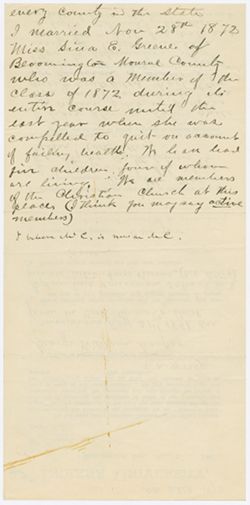 every county in the state
I married Nov 28th 1872
Miss Sina E. Greene of
Bloomington Monroe County
who was a Member of the
class of 1872 during its
entire course until the
last year when she was
compelled to quit on account
of failing health. We have had
five children, four of whom
are living. We are members
of the Christian Church at this
place (I think you may say active
members)